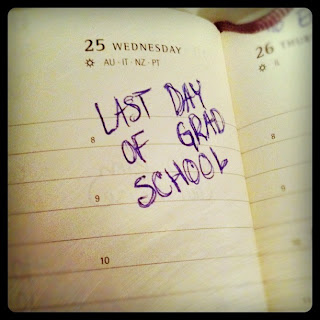 25 WEDNESDAY
AU · IT · NZ · PT
LAST DAY
OF GRAD
SCHOOL
8
9
10
26 THUR
8
9